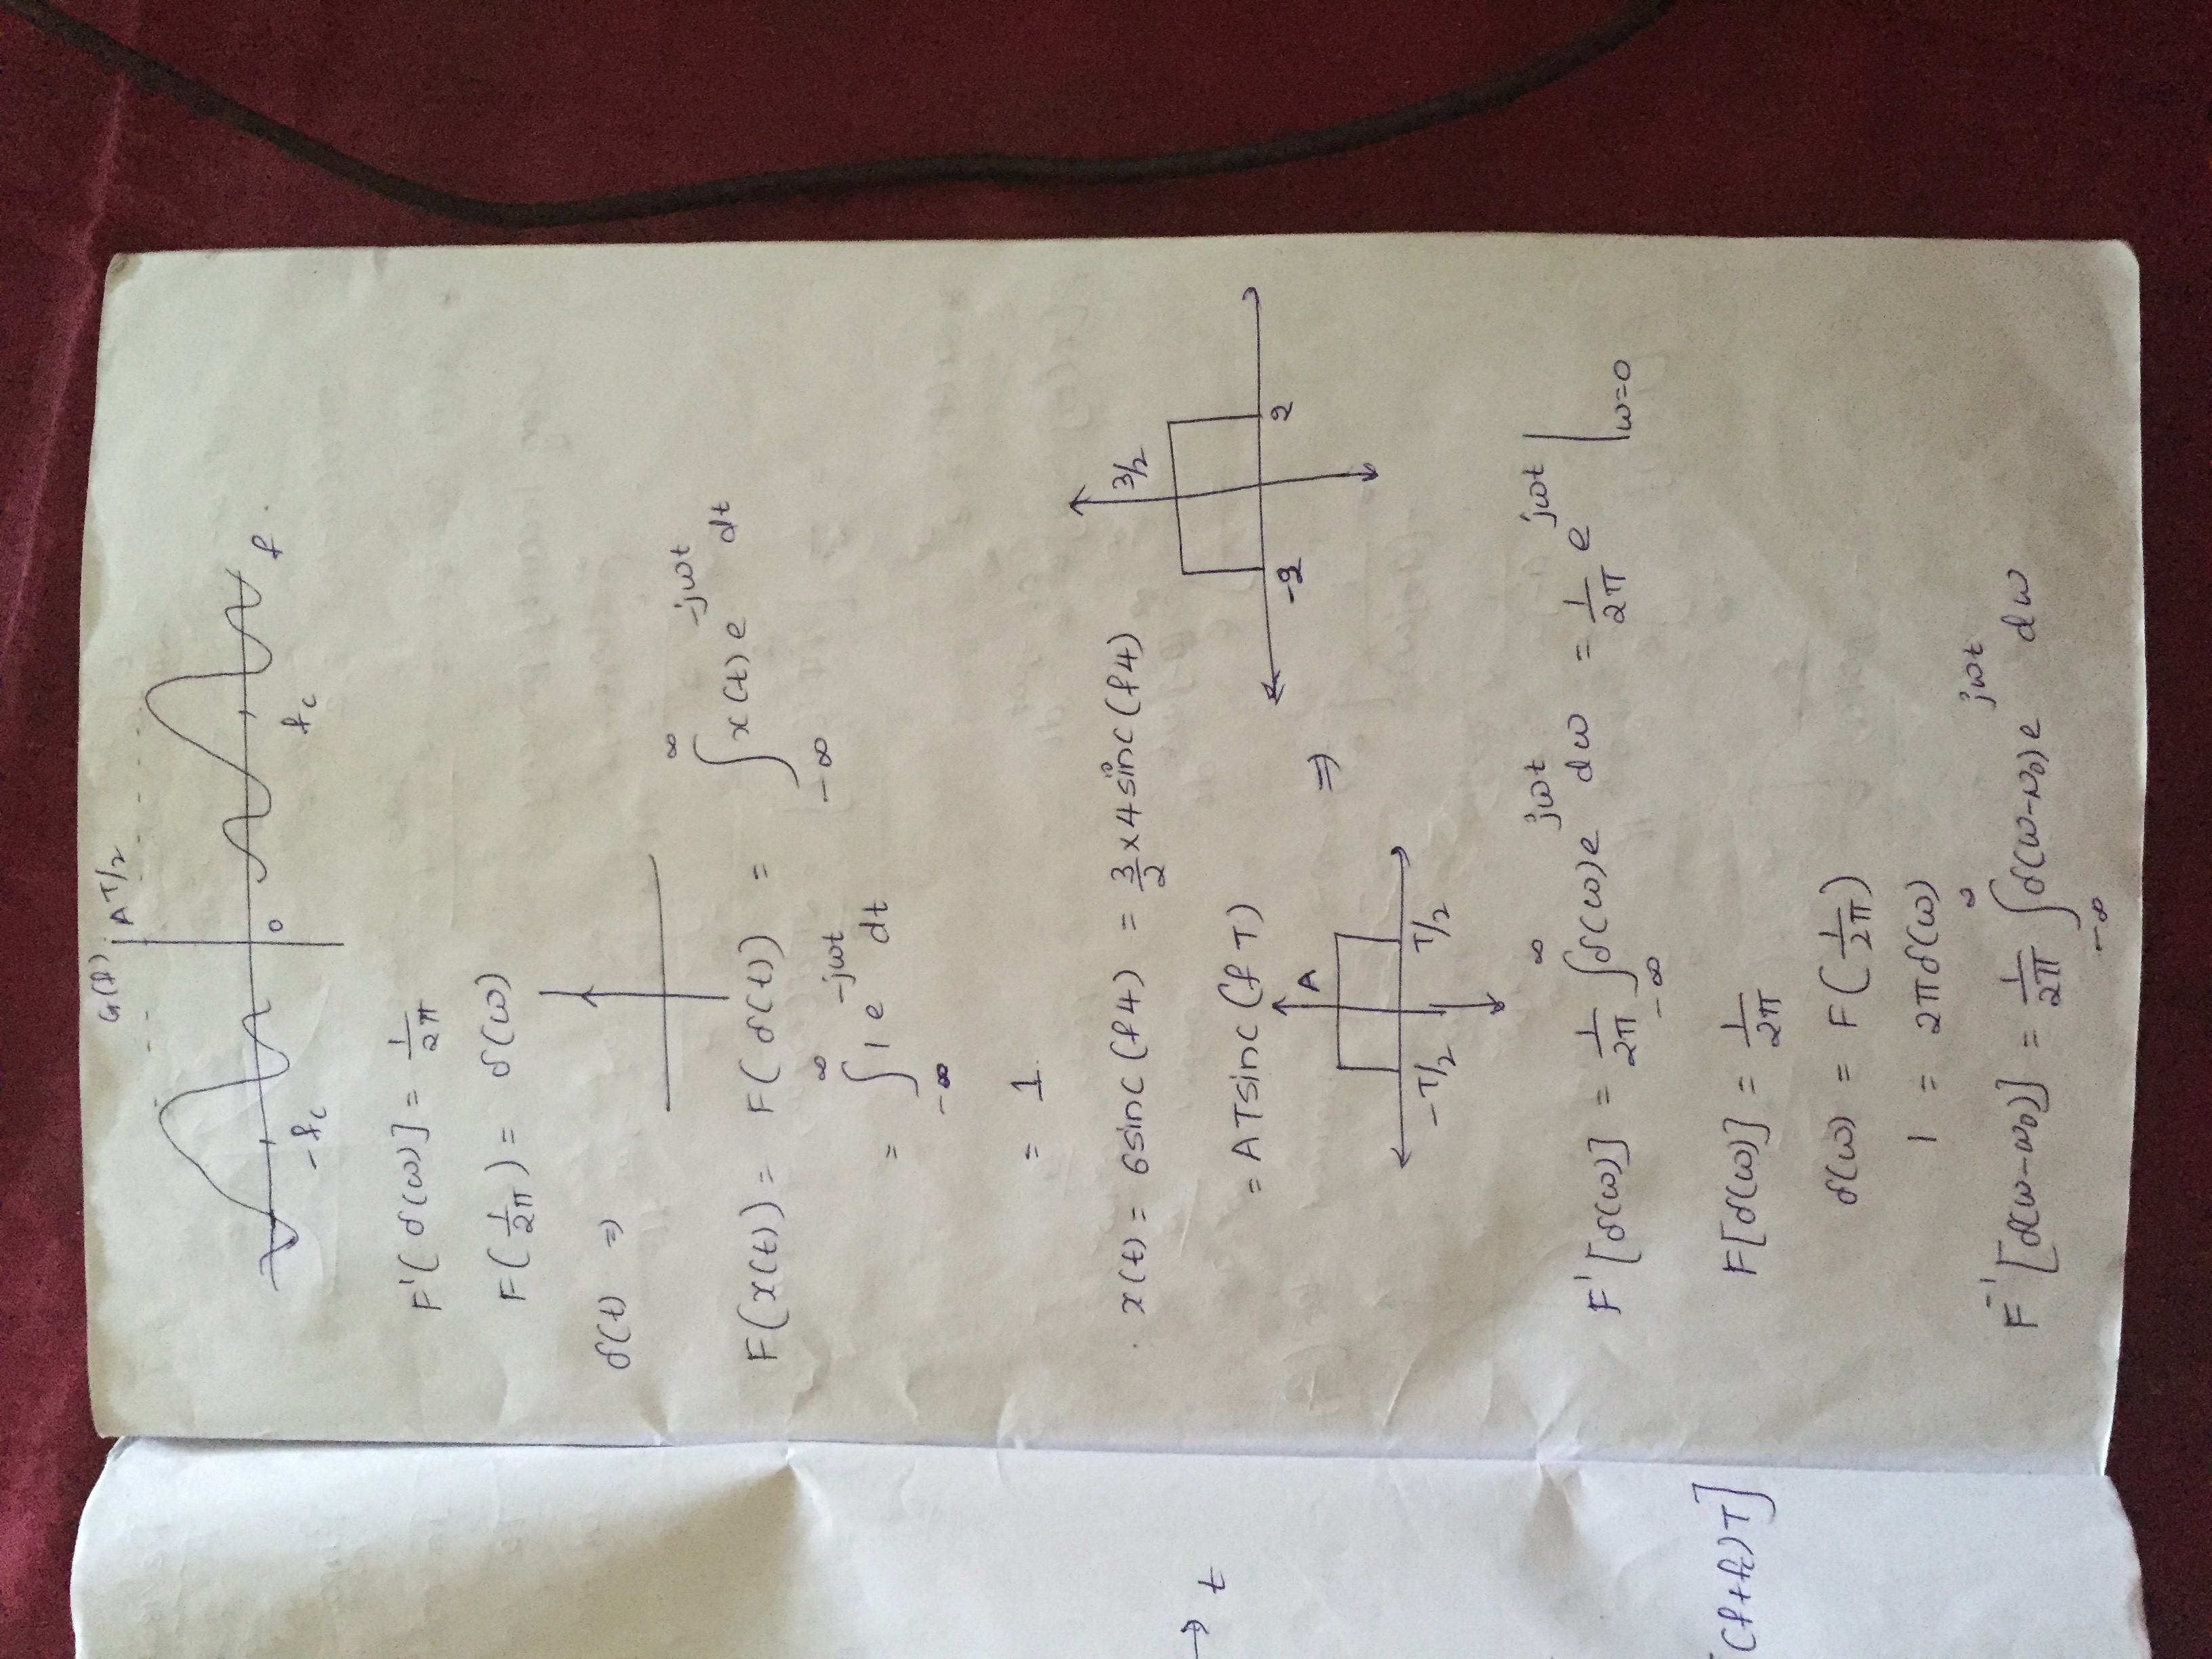 G(f) AT/2
-fc 0 fc f
F'[δ(ω)] = 1/2π
F(1/2π) = δ(ω)
δ(t) ⇒
F(x(t)) = F(δ(t)) = ∫_{-∞}^{∞} x(t) e^{-jωt} dt
= ∫_{-∞}^{∞} 1 e^{-jωt} dt
= 1.
x(t) = 6sinc(f4) = 3/2 × 4 sinc(f4)
3/2
-2 2
= AT sinc(f T)
A
⇒
-T/2 T/2
→ t
F'[δ(ω)] = 1/2π ∫_{-∞}^{∞} δ(ω) e^{jωt} dω = 1/2π e^{jωt} |_{ω=0}
(f+fc)T]
F[δ(ω)] = 1/2π
δ(ω) = F(1/2π)
1 = 2πδ(ω)
F^{-1}[δ(ω-ω0)] = 1/2π ∫_{-∞}^{∞} δ(ω-ω0) e^{jωt} dω